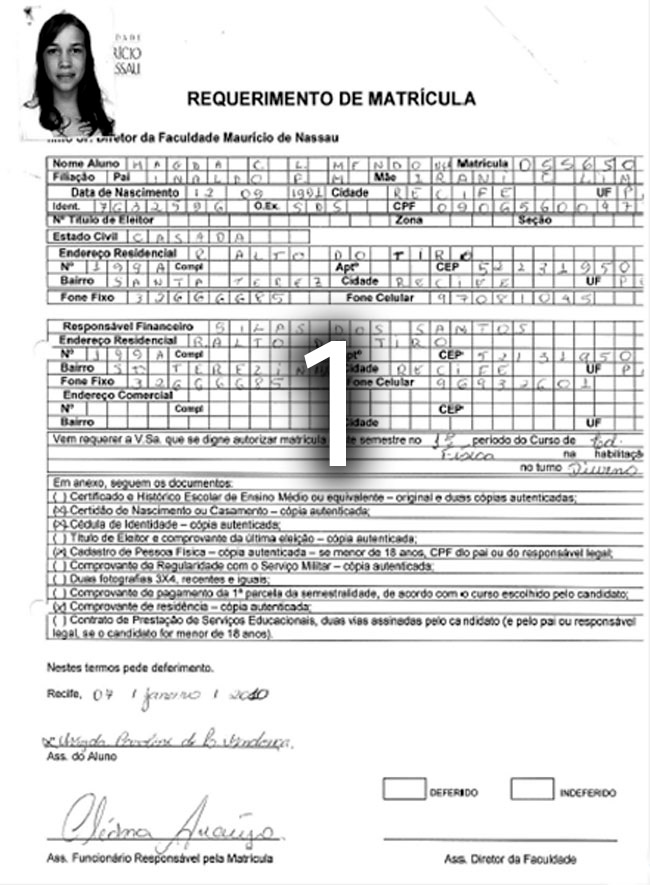 DADE
RÍCIO
SSAU
REQUERIMENTO DE MATRÍCULA
Diretor da Faculdade Maurício de Nassau
Nome Aluno MAGDA C. L. MENDO Matrícula 055650
Filiação Pai Mãe IRANI
Data de Nascimento 12 09 1991 Cidade RECIFE UF P
Ident. O.Ex. SDS CPF
Nº Título de Eleitor Zona Seção
Estado Civil CASADA
Endereço Residencial R ALTO DO TIRO
Nº 199A Compl Aptº CEP
Bairro SANTA Cidade RECIFE UF P
Fone Fixo 32666685 Fone Celular 97081045
Responsável Financeiro SILAS DOS SANTOS
Endereço Residencial R ALTO TIRO
Nº 199A Compl Aptº CEP
Bairro Cidade RECIFE UF P
Fone Fixo 32666685 Fone Celular 96932601
Endereço Comercial
Nº Compl CEP
Bairro Cidade UF
1
Vem requerer a V.Sa. que se digne autorizar matrícula semestre no 1º período do Curso de Ed.
Física na habilitaçã
no turno Diurno
Em anexo, seguem os documentos:
( ) Certificado e Histórico Escolar de Ensino Médio ou equivalente – original e duas cópias autenticadas;
(x) Certidão de Nascimento ou Casamento – cópia autenticada;
(x) Cédula de Identidade – cópia autenticada;
( ) Título de Eleitor e comprovante da última eleição – cópia autenticada;
(x) Cadastro de Pessoa Física – cópia autenticada – se menor de 18 anos, CPF do pai ou do responsável legal;
( ) Comprovante de Regularidade com o Serviço Militar – cópia autenticada;
( ) Duas fotografias 3X4, recentes e iguais;
( ) Comprovante de pagamento da 1ª parcela da semestralidade, de acordo com o curso escolhido pelo candidato;
(x) Comprovante de residência – cópia autenticada;
( ) Contrato de Prestação de Serviços Educacionais, duas vias assinadas pelo candidato (e pelo pai ou responsável
legal, se o candidato for menor de 18 anos).
Nestes termos pede deferimento.
Recife, 07 / janeiro / 2010
Magda Caroline de L. Mendonça
Ass. do Aluno
DEFERIDO INDEFERIDO
Araújo
Ass. Funcionário Responsável pela Matrícula Ass. Diretor da Faculdade